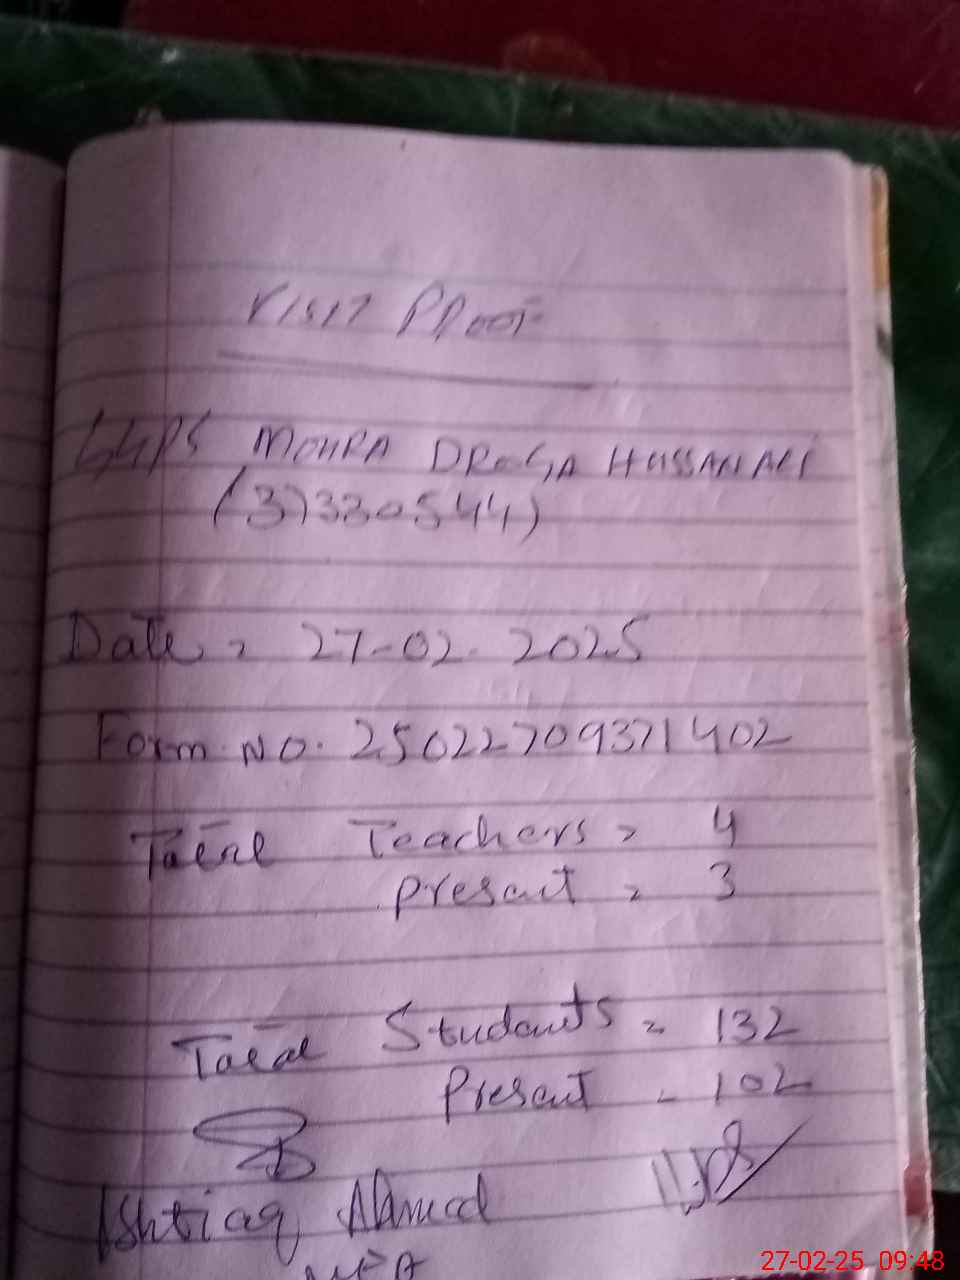 Visit Proof
GGPS MOHRA DROGA HUSSAN ALI
(37330544)
Date = 27-02-2025
Form No. 25022709371402
Total Teachers = 4
Present = 3
Total Students = 132
Present - 102
Ishtiaq Ahmed
MEA
27-02-25 09:48